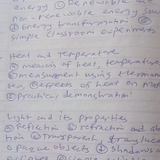 energy ① Renewable and
non-renewable energy sour
② Energy transformation ③
simple classroom experiments
Heat and temperature
① measure of heat, temperature
② measurement using thermome
ter, ③ effects of heat on mat
④ practical demonstration
Light and its properties
① Reflection ② refraction and
③ Transparent, transluc
opaque objects ④ shadows